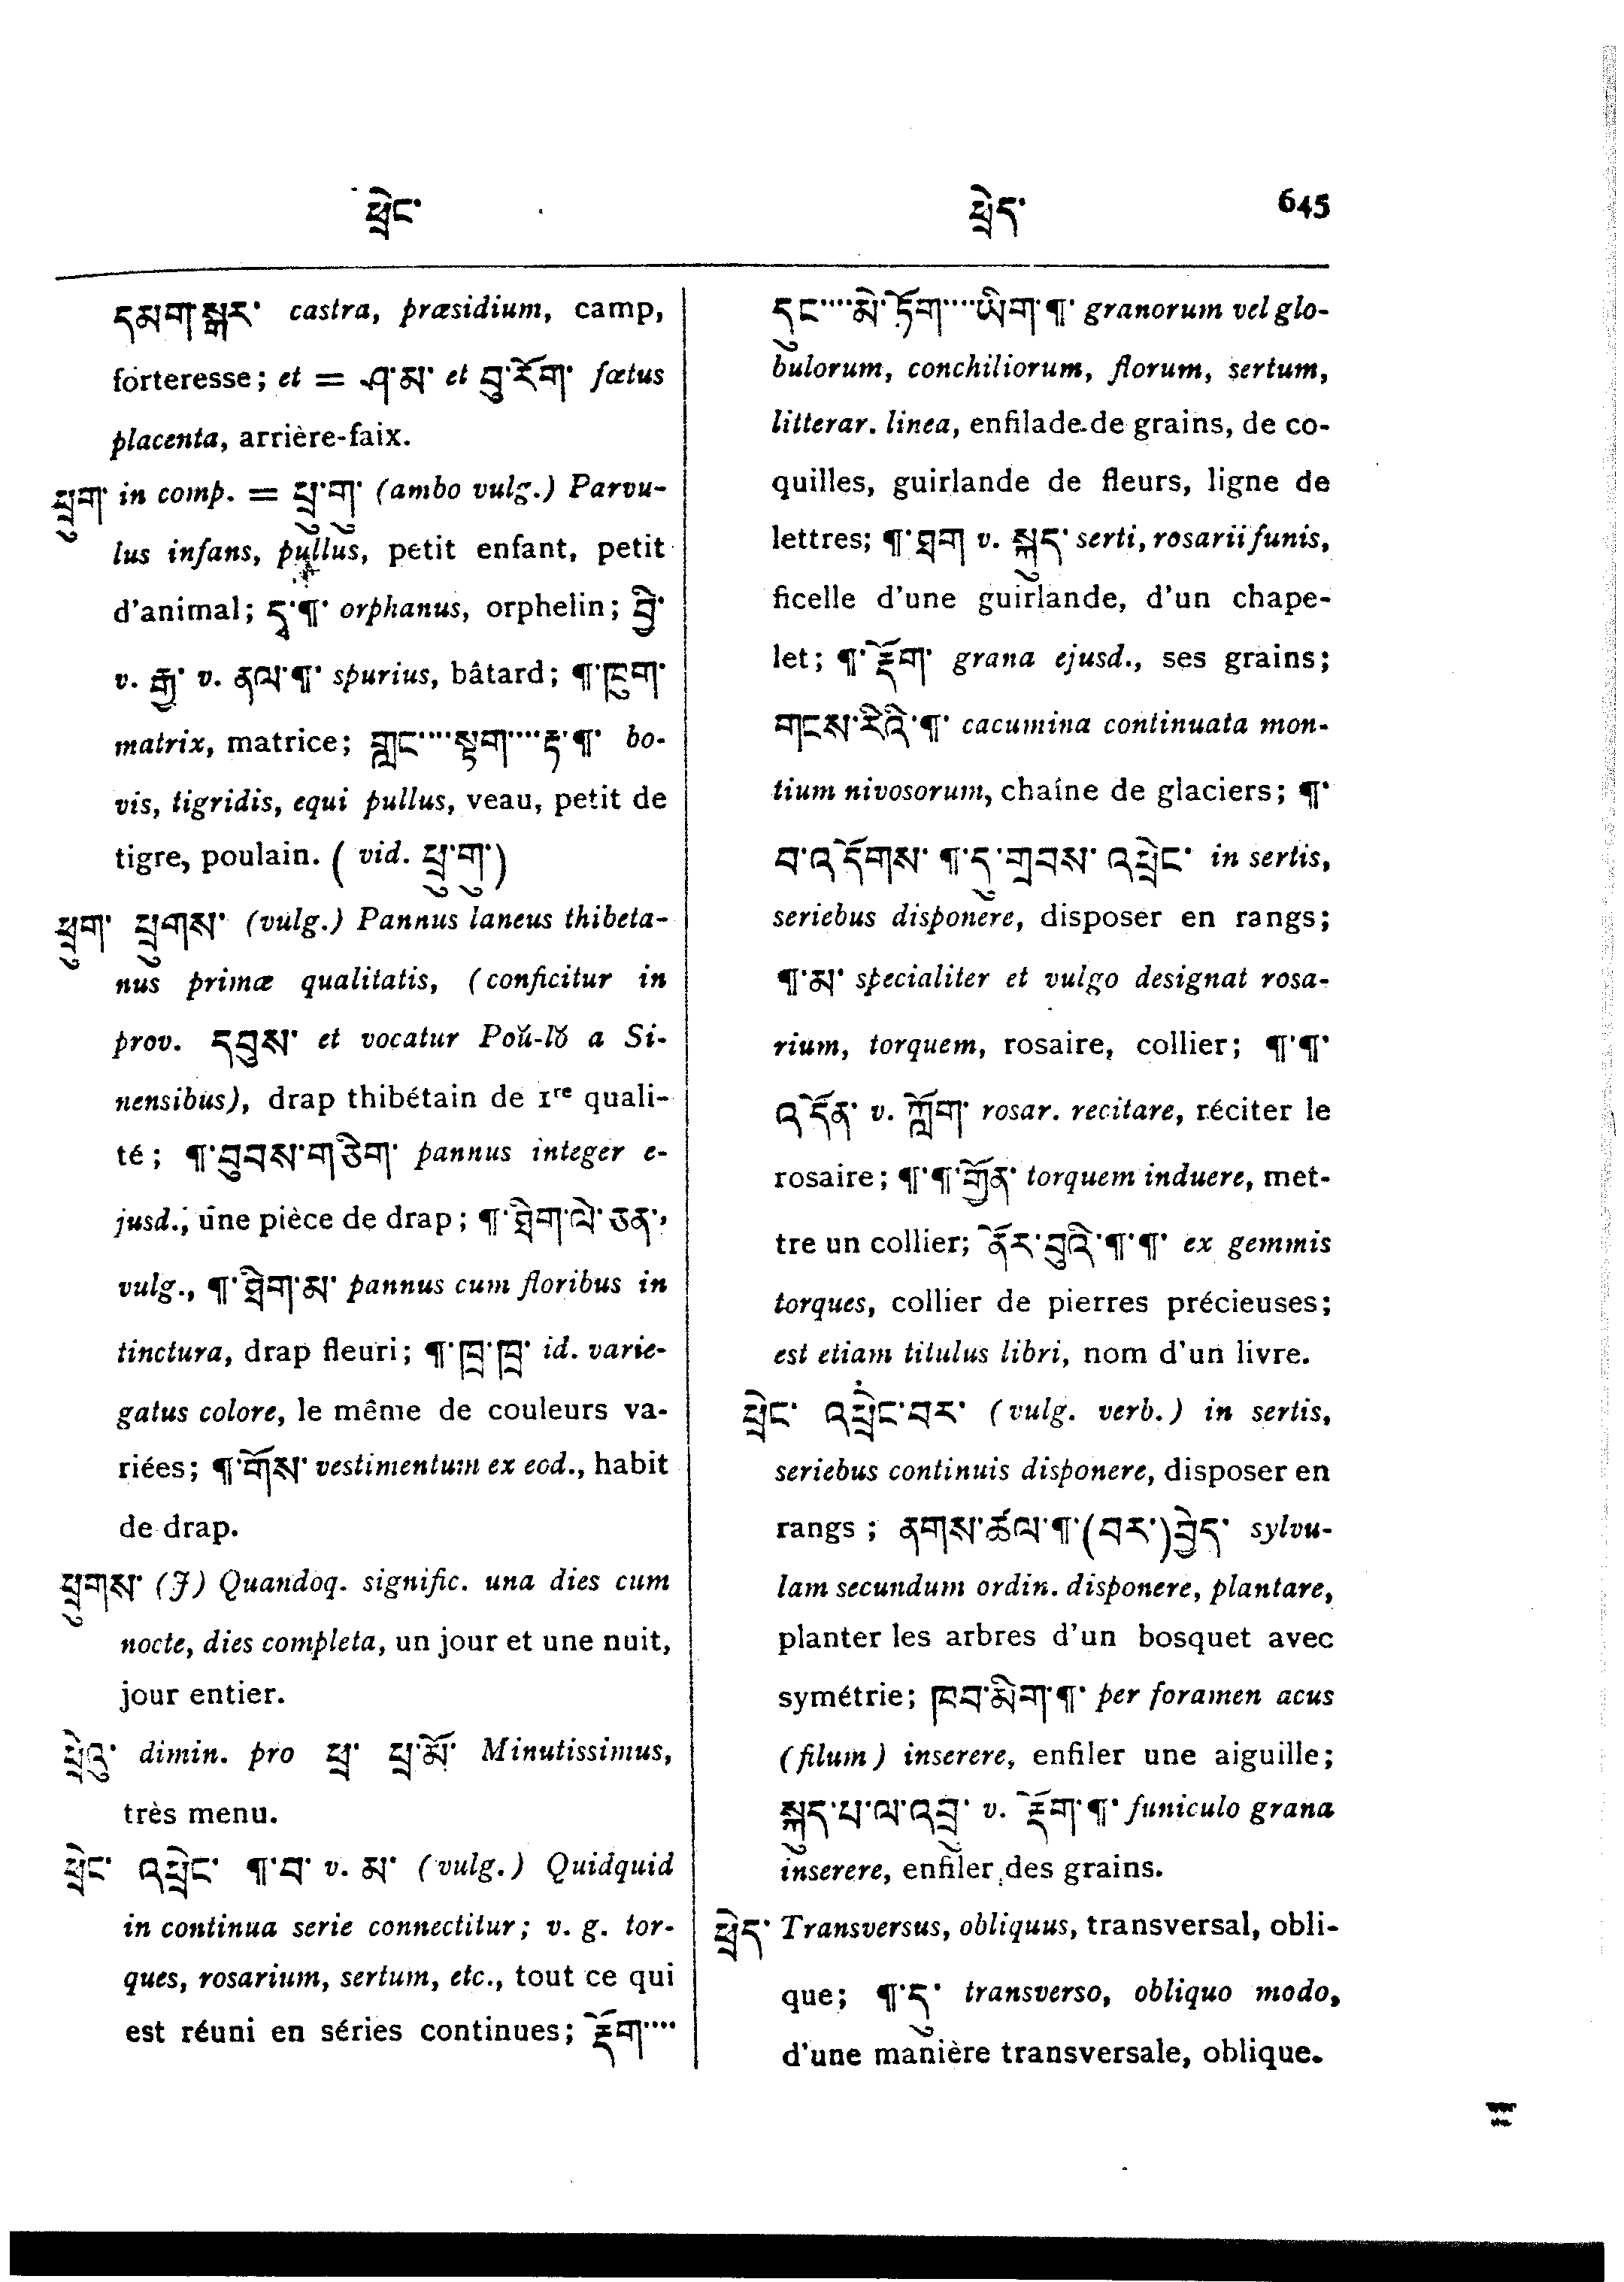 ཕྲེང་ ཕྲེད་ 645
དམག་སྒར་ castra, præsidium, camp,
forteresse; et = ཤ་མ་ et བུ་རོག་ fœtus
placenta, arrière-faix.
ཕྲུག་ in comp. = ཕྲུ་གུ་ (ambo vulg.) Parvu-
lus infans, pullus, petit enfant, petit
d'animal; དྭ་¶་ orphanus, orphelin; བྱི་
v. རྒྱ་ v. ནལ་¶་ spurius, bâtard; ¶་ཁུག་
matrix, matrice; གླང་····སྟག་····རྟ་¶་ bo-
vis, tigridis, equi pullus, veau, petit de
tigre, poulain. (vid. ཕྲུ་གུ་)
ཕྲུག་ ཕྲུགས་ (vulg.) Pannus laneus thibeta-
nus primæ qualitatis, (conficitur in
prov. དབུས་ et vocatur Poŭ-lŏ a Si-
nensibus), drap thibétain de 1re quali-
té; ¶་བུབས་གཅིག་ pannus integer e-
jusd., une pièce de drap; ¶་ཐིག་ལེ་ཅན་,
vulg., ¶་ཐིག་མ་ pannus cum floribus in
tinctura, drap fleuri; ¶་ཁྲ་ཁྲ་ id. varie-
gatus colore, le même de couleurs va-
riées; ¶་གོས་ vestimentum ex eod., habit
de drap.
ཕྲུགས་ (J) Quandoq. signific. una dies cum
nocte, dies completa, un jour et une nuit,
jour entier.
ཕྲེའུ་ dimin. pro ཕྲ་ ཕྲ་མོ་ Minutissimus,
très menu.
ཕྲེང་ འཕྲེང་ ¶་བ་ v. མ་ (vulg.) Quidquid
in continua serie connectitur; v. g. tor-
ques, rosarium, sertum, etc., tout ce qui
est réuni en séries continues; རྡོག་····
དུང་····མེ་ཏོག་····ཡིག་¶་ granorum vel glo-
bulorum, conchiliorum, florum, sertum,
litterar. linea, enfilade de grains, de co-
quilles, guirlande de fleurs, ligne de
lettres; ¶་ཐག v. སྐུད་ serti, rosarii funis,
ficelle d'une guirlande, d'un chape-
let; ¶་རྡོག་ grana ejusd., ses grains;
གངས་རིའི་¶་ cacumina continuata mon-
tium nivosorum, chaîne de glaciers; ¶་
བ་འདོགས་ ¶་དུ་གྲབས་ འཕྲེང་ in sertis,
seriebus disponere, disposer en rangs;
¶་མ་ specialiter et vulgo designat rosa-
rium, torquem, rosaire, collier; ¶་¶་
འདོན་ v. ཀློག་ rosar. recitare, réciter le
rosaire; ¶་¶་གྱོན་ torquem induere, met-
tre un collier; ནོར་བུའི་¶་¶་ ex gemmis
torques, collier de pierres précieuses;
est etiam titulus libri, nom d'un livre.
ཕྲེང་ འཕྲེང་བར་ (vulg. verb.) in sertis,
seriebus continuis disponere, disposer en
rangs; ནགས་ཚལ་¶་(བར་)བྱེད་ sylvu-
lam secundum ordin. disponere, plantare,
planter les arbres d'un bosquet avec
symétrie; ཁབ་མིག་¶་ per foramen acus
(filum) inserere, enfiler une aiguille;
སྐུད་པ་ལ་འབྲུ་ v. རྡོག་¶་ funiculo grana
inserere, enfiler des grains.
ཕྲེད་ Transversus, obliquus, transversal, obli-
que; ¶་དུ་ transverso, obliquo modo,
d'une manière transversale, oblique.